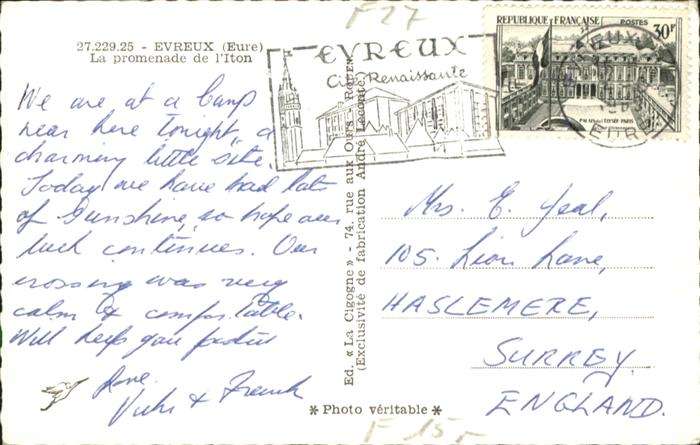 F 27
27.229.25 - EVREUX (Eure)
La promenade de l'Iton
We are at a Camp
near here tonight, a
charming little site.
Today we have had lots
of sunshine, so hope our
luck continues. Our
crossing was very
calm & comfortable.
Will keep you posted
Love
Vicki & Frank
Ed. « La Cigogne » - 74, rue aux Ours - Rouen
(Exclusivité de fabrication André Leconte)
* Photo véritable *
EVREUX
Cité Renaissante
REPUBLIQUE FRANÇAISE POSTES
30F
PALAIS DE L'ELYSÉE-PARIS
EVREUX
EURE
Mrs. E.
105. Lion Lane,
HASLEMERE,
SURREY.
ENGLAND.
F 15